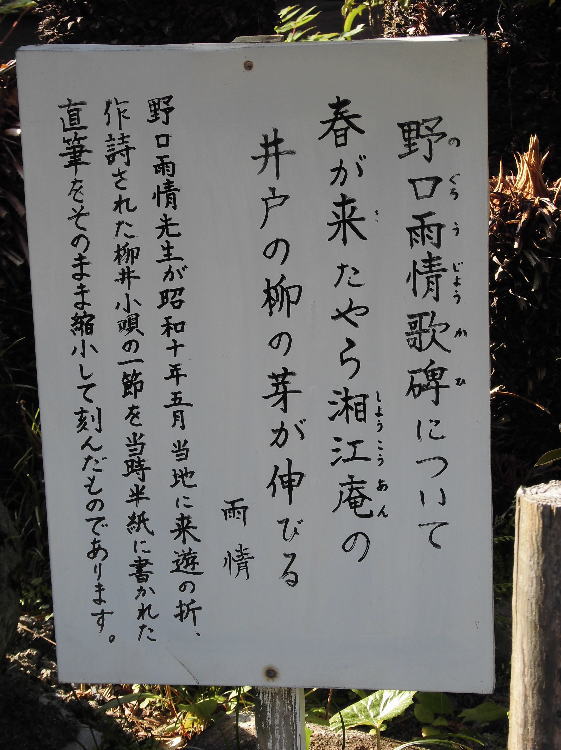 野口雨情歌碑について
春が来たやら湘江庵の
井戸の柳の芽が伸びる
雨情
野口雨情先生が昭和十年五月当地に来遊の折、
作詩された柳井小唄の一節を当時半紙に書かれた
直筆をそのまま縮小して刻んだものであります。